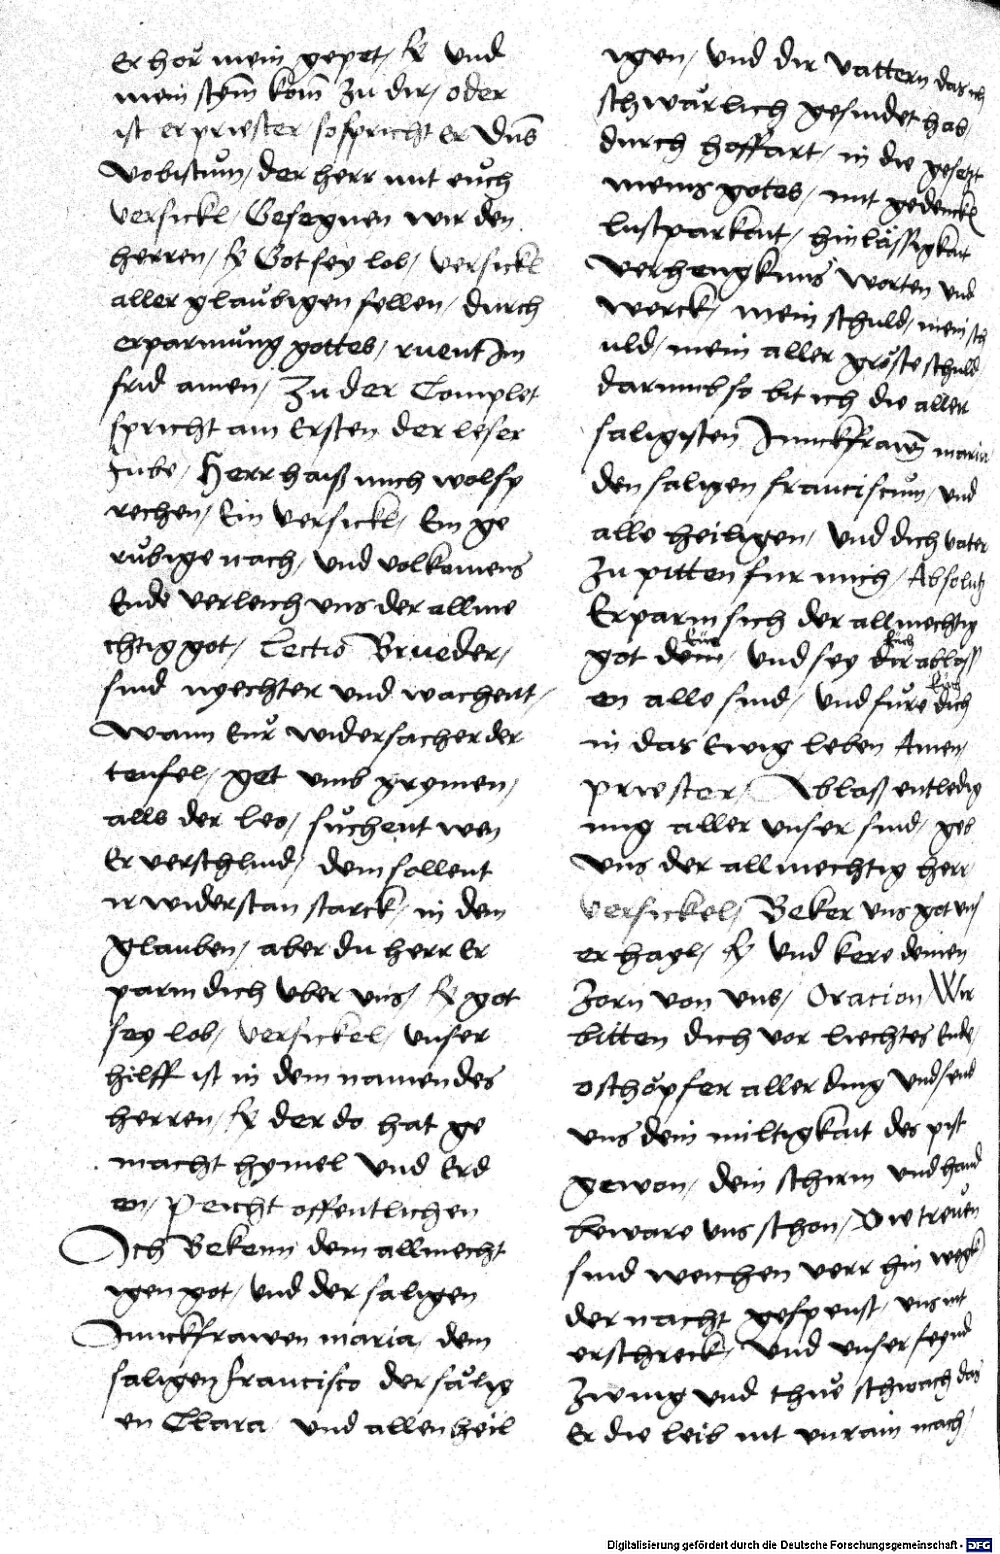 Erhör mein gepet / ℟ und
mein stym̄ kom̄ zu dir / oder
ist er priester so spricht er Dn̄s
vobiscum / der herr mit euch
versickl / Gesegnen wir den
herren / ℟ Got sey lob / versickl
aller glaubigen sellen / durch
erparmung gottes / ruent Im
frid amen / Zu der Complet
spricht am Ersten der leser
Jube / Herr haiß mich wolsp
rechen / Ein versickl / Ein ge
rubige nach / und volkomens
Ende verleich uns der allme
chtig got / Lectio Brueder /
sind nyechter und wachent /
Wann Eur widersacher der
teufel / get umb grymen /
alls der leo / suchent wen
Er verschlind / dem sollent
ir widerstan starck / in dem
glauben / aber du herr Er
parm dich uber uns / ℟ got
sey lob / versickel / unser
hilff ist in dem namen des
herren / ℟ der do hat ge
macht hymel und Erd
en / Peicht offentlichen
Ich Bekenn dem allmecht
igen got / und der saligen
Junckfrawen maria / dem
saligen Francisco der sälig
en Clara / und allen heil
igen / und dir vattern das ich
schwarlich gesundet hab
durch hoffart / in die gesetzt
meins gotes / mit gedenckn
lustparkait / hinlässigkait
verhengknus worten und
werck / mein schuld / mein sch
uld / mein aller gröste schuld
darumb so bit ich die aller
saligisten Junckfrawē maria
den saligen franciscum / und
alle heiligen / und dich vater
zu pitten fur mich / Absolutz
Erparm sich der allmechtig
euch euch
got dein / und sey dir ablass
euch
en alle sind / und fure dich
in das Ewig leben Amen /
priester / Ablaß entledig
ung aller unser sind / geb
uns der allmechtig herr
versickel / Beker uns got uns
er hayl / ℟ und kere deinen
zorn von uns / Oracion / Wir
bitten dich vor liechtes Ende /
o schöpfer aller ding und send
uns dein miltigkait des pist
gewon / dein schirm und hand
beware uns schon / Die treuen
sind weichen verr hin wegk
der nacht gespenst / uns nit
erschreck / und unser feynd
zwing und thue schwach das
Er die leib nit unrain mach /
Digitalisierung gefördert durch die Deutsche Forschungsgemeinschaft - DFG